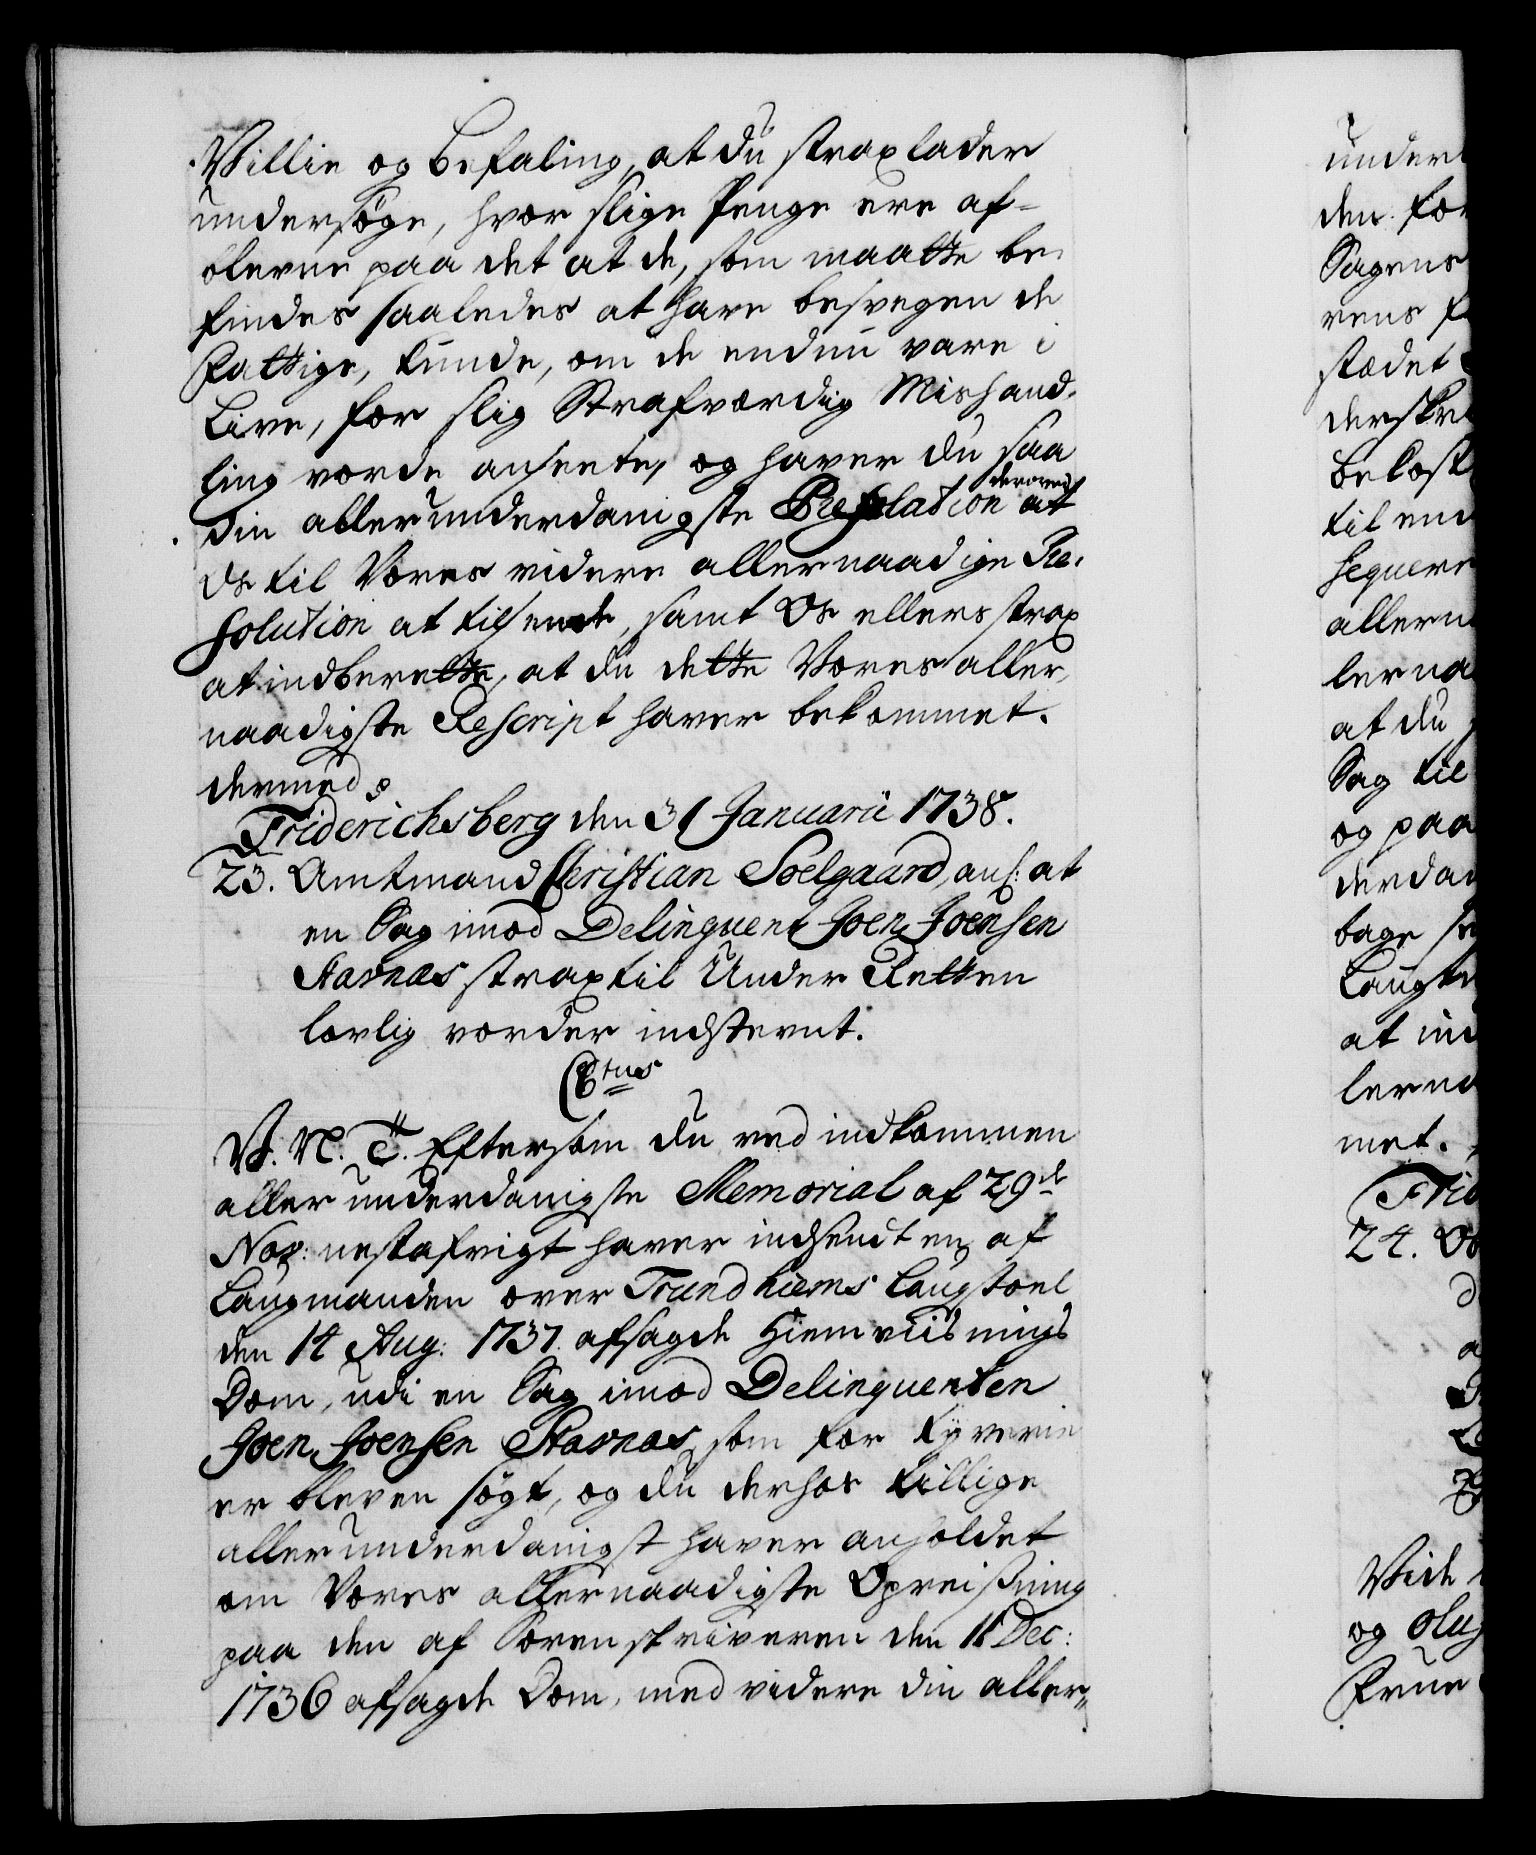 Villie og befaling, at du strax lader
undersøge, hvor slige Penge ere af-
blevne paa det at de, som maatte be-
findes saaledes at have besvegen de
Fattige, kunde, om de endnu vare i
Live, for slig Strafværdig Mishand-
ling vorde anseete, og haver du saa
din allerunderdanigste Relation derover at
Os til Vores videre allernaadigste Re-
solution at tilsende, samt Os ellers strax
at indberette, at du dette Vores aller-
naadigste Rescript haver bekommet.
dermed
Friderichsberg den 31 Januarii 1738.
23. Amtmand Christian Soelgaard, anl: at
en Sag imod Delinquent Joen Joensen
Starnæs strax til Under Retten
lovlig vorder indstevnt.
C 6tus
V. N. T. Eftersom du ved indkommen
allerunderdanigste Memorial af 29de
Nov: nestafvigt haver indsendt en af
Laugmanden over Trundhiems Laugstoel
den 14 Aug: 1737 afsagde Hiemviisnings
Dom, udi en Sag imod Delinquenten
Joen Joensen Starnæs, som for Tyverie
er bleven søgt, og du derhos tillige
allerunderdanigst haver anholdet
om Vores allernaadigste Opreisning
paa den af Sorenskriveren den 18 Dec:
1736 afsagde Dom, med videre din aller-
under
den for
Sagens
vens
stædet
derskr
bekost
til end
seqver
allern
lerna
at du
Sag til
og paa
derdan
bage
Laugt
at ind
lerna
met.
Frid
24. Os
Vide
og Oluf
Frue